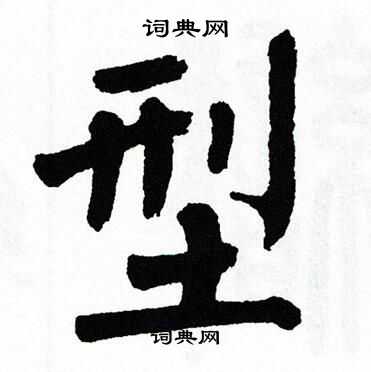 词典网
型
词典网